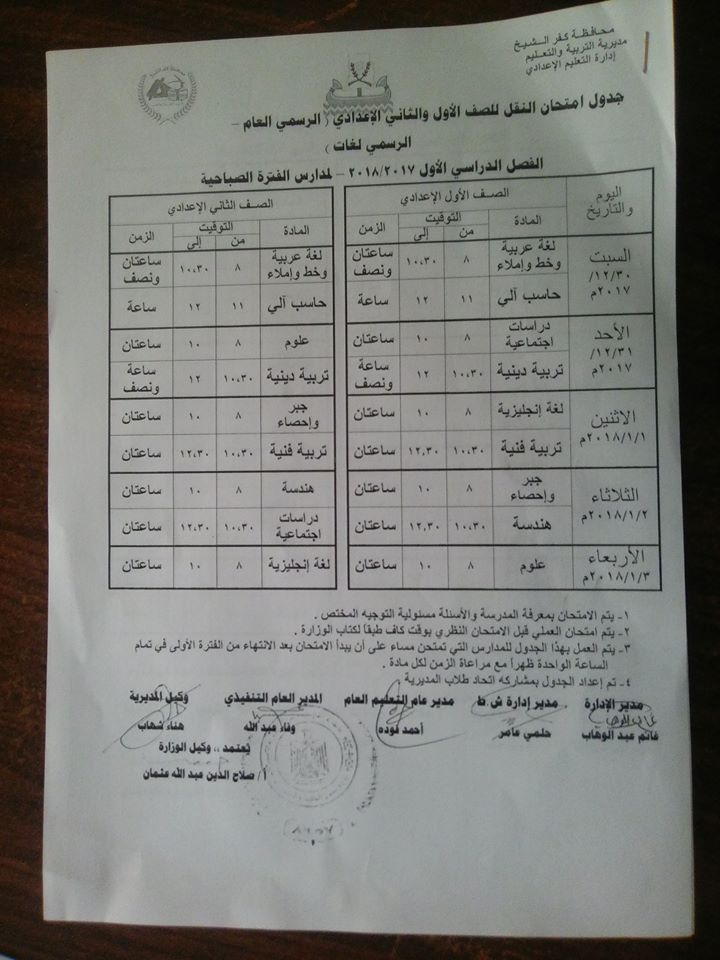 محافظة كفر الشيخ
مديرية التربية والتعليم
إدارة التعليم الإعدادي
جدول امتحان النقل للصف الأول والثاني الإعدادي ( الرسمي العام –
الرسمي لغات )
الفصل الدراسي الأول ٢٠١٨/٢٠١٧ – لمدارس الفترة الصباحية
اليوم والتاريخ الصف الأول الإعدادي الصف الثاني الإعدادي
المادة التوقيت الزمن المادة التوقيت الزمن
من إلى من إلى
السبت ١٢/٣٠/ ٢٠١٧م لغة عربية وخط وإملاء ٨ ١٠،٣٠ ساعتان ونصف لغة عربية وخط وإملاء ٨ ١٠،٣٠ ساعتان ونصف
حاسب آلي ١١ ١٢ ساعة حاسب آلي ١١ ١٢ ساعة
الأحد ١٢/٣١/ ٢٠١٧م دراسات اجتماعية ٨ ١٠ ساعتان علوم ٨ ١٠ ساعتان
تربية دينية ١٠،٣٠ ١٢ ساعة ونصف تربية دينية ١٠،٣٠ ١٢ ساعة ونصف
الاثنين ٢٠١٨/١/١م لغة إنجليزية ٨ ١٠ ساعتان جبر وإحصاء ٨ ١٠ ساعتان
تربية فنية ١٠،٣٠ ١٢،٣٠ ساعتان تربية فنية ١٠،٣٠ ١٢،٣٠ ساعتان
الثلاثاء ٢٠١٨/١/٢م جبر وإحصاء ٨ ١٠ ساعتان هندسة ٨ ١٠ ساعتان
هندسة ١٠،٣٠ ١٢،٣٠ ساعتان دراسات اجتماعية ١٠،٣٠ ١٢،٣٠ ساعتان
الأربعاء ٢٠١٨/١/٣م علوم ٨ ١٠ ساعتان لغة إنجليزية ٨ ١٠ ساعتان
١- يتم الامتحان بمعرفة المدرسة والأسئلة مسئولية التوجيه المختص .
٢- يتم امتحان العملي قبل الامتحان النظري بوقت كاف طبقاً لكتاب الوزارة .
٣- يتم العمل بهذا الجدول للمدارس التي تمتحن مساء على أن يبدأ الامتحان بعد الانتهاء من الفترة الأولى في تمام
الساعة الواحدة ظهراً مع مراعاة الزمن لكل مادة .
٤- تم إعداد الجدول بمشاركة اتحاد طلاب المديرية
مدير الإدارة مدير إدارة ش.ط مدير عام التعليم العام المدير العام التنفيذي وكيل المديرية
فاتم عبد الوهاب حلمي عامر أحمد فوده وفاء عبد الله هناء شهاب
يُعتمد ،، وكيل الوزارة
أ/ صلاح الدين عبد الله عثمان